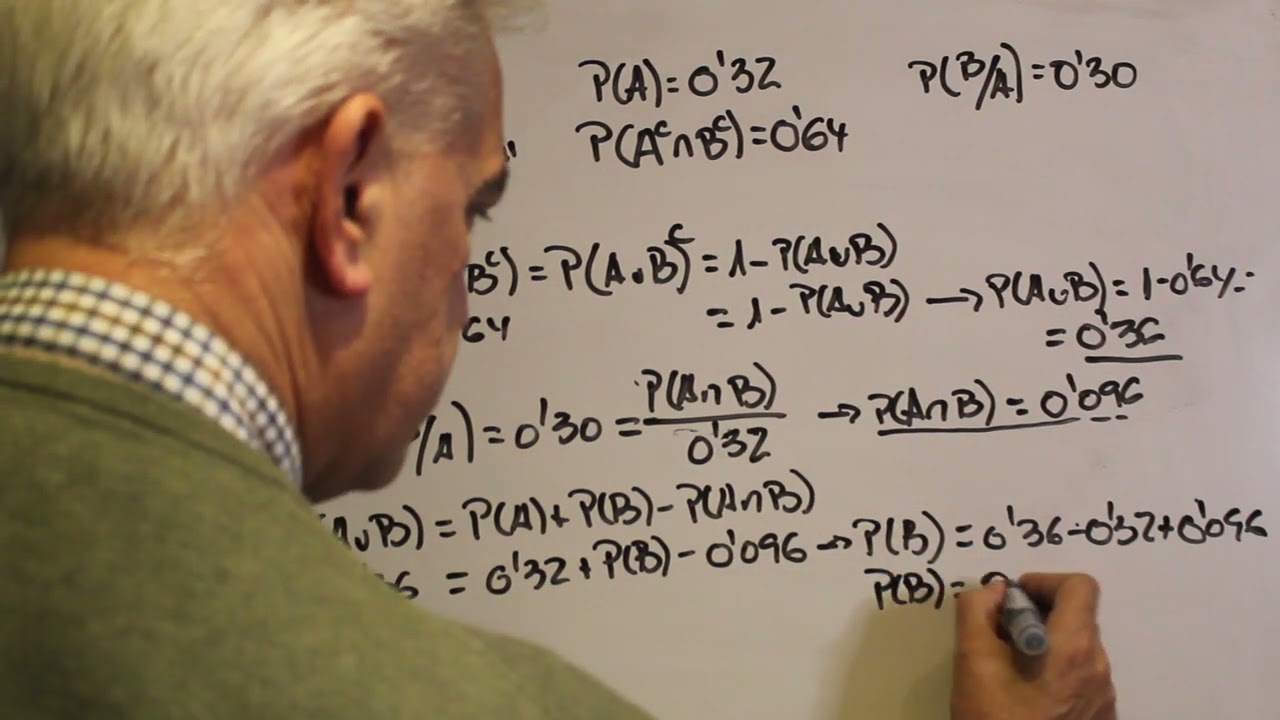 P(A)=0'32 P(B/A)=0'30
P(Aᶜ∩Bᶜ)=0'64
Bᶜ)=P(A∪B)ᶜ=1-P(A∪B)
64 =1-P(A∪B) → P(A∪B)=1-0'64=
=0'36
/A)=0'30=P(A∩B)/0'32 → P(A∩B)=0'096
A∪B)=P(A)+P(B)-P(A∩B)
6 =0'32+P(B)-0'096 → P(B)=0'36-0'32+0'096
P(B)=0